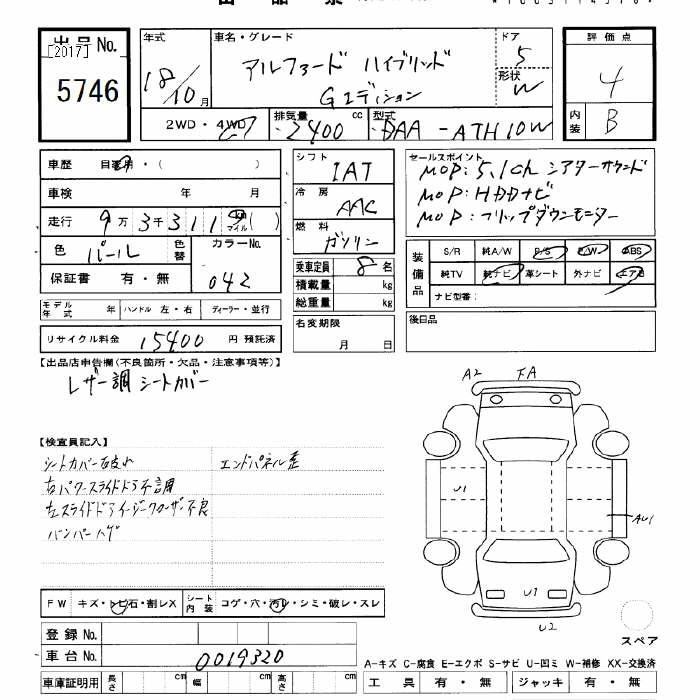 出品No.
[2017]
5746
年式
18/10月
車名・グレード
アルファード ハイブリッド
Gエディション
ドア
5
形状
W
評価点
4
内装
B
2WD・4WD
排気量
2400 cc
型式
DAA-ATH10W
車歴 自家用・( )
車検 年 月
走行 9万3千311 km マイル( )
色
パール
色替
カラーNo.
042
保証書 有・無
モデル年式 年
ハンドル 左・右
ディーラー・並行
リサイクル料金 15400 円 預託済
シフト
IAT
冷房
AAC
燃料
ガソリン
乗車定員 8 名
積載量 kg
総重量 kg
名変期限
月 日
セールスポイント
MOP:5.1ch シアターサウンド
MOP:HDDナビ
MOP:フリップダウンモニター
装備品
S/R 純A/W P/S P/W ABS
純TV 純ナビ 革シート 外ナビ エアB
ナビ型番:
後日品
【出品店申告欄(不良箇所・欠品・注意事項等)】
レザー調シートカバー
【検査員記入】
シートカバー破れ
エンドパネル歪
右パワースライドドア不調
左スライドドアイージークローザー不良
バンパーハゲ
FW キズ・トビ石・割レX
シート内装 コゲ・穴・汚レ・シミ・破レ・スレ
登録No.
車台No. 0019320
車庫証明用 長さ 幅 高さ
A2
FA
U1
AU1
U1
U2
スペア
A-キズ C-腐食 E-エクボ S-サビ U-凹ミ W-補修 XX-交換済
工具 有・無
ジャッキ 有・無